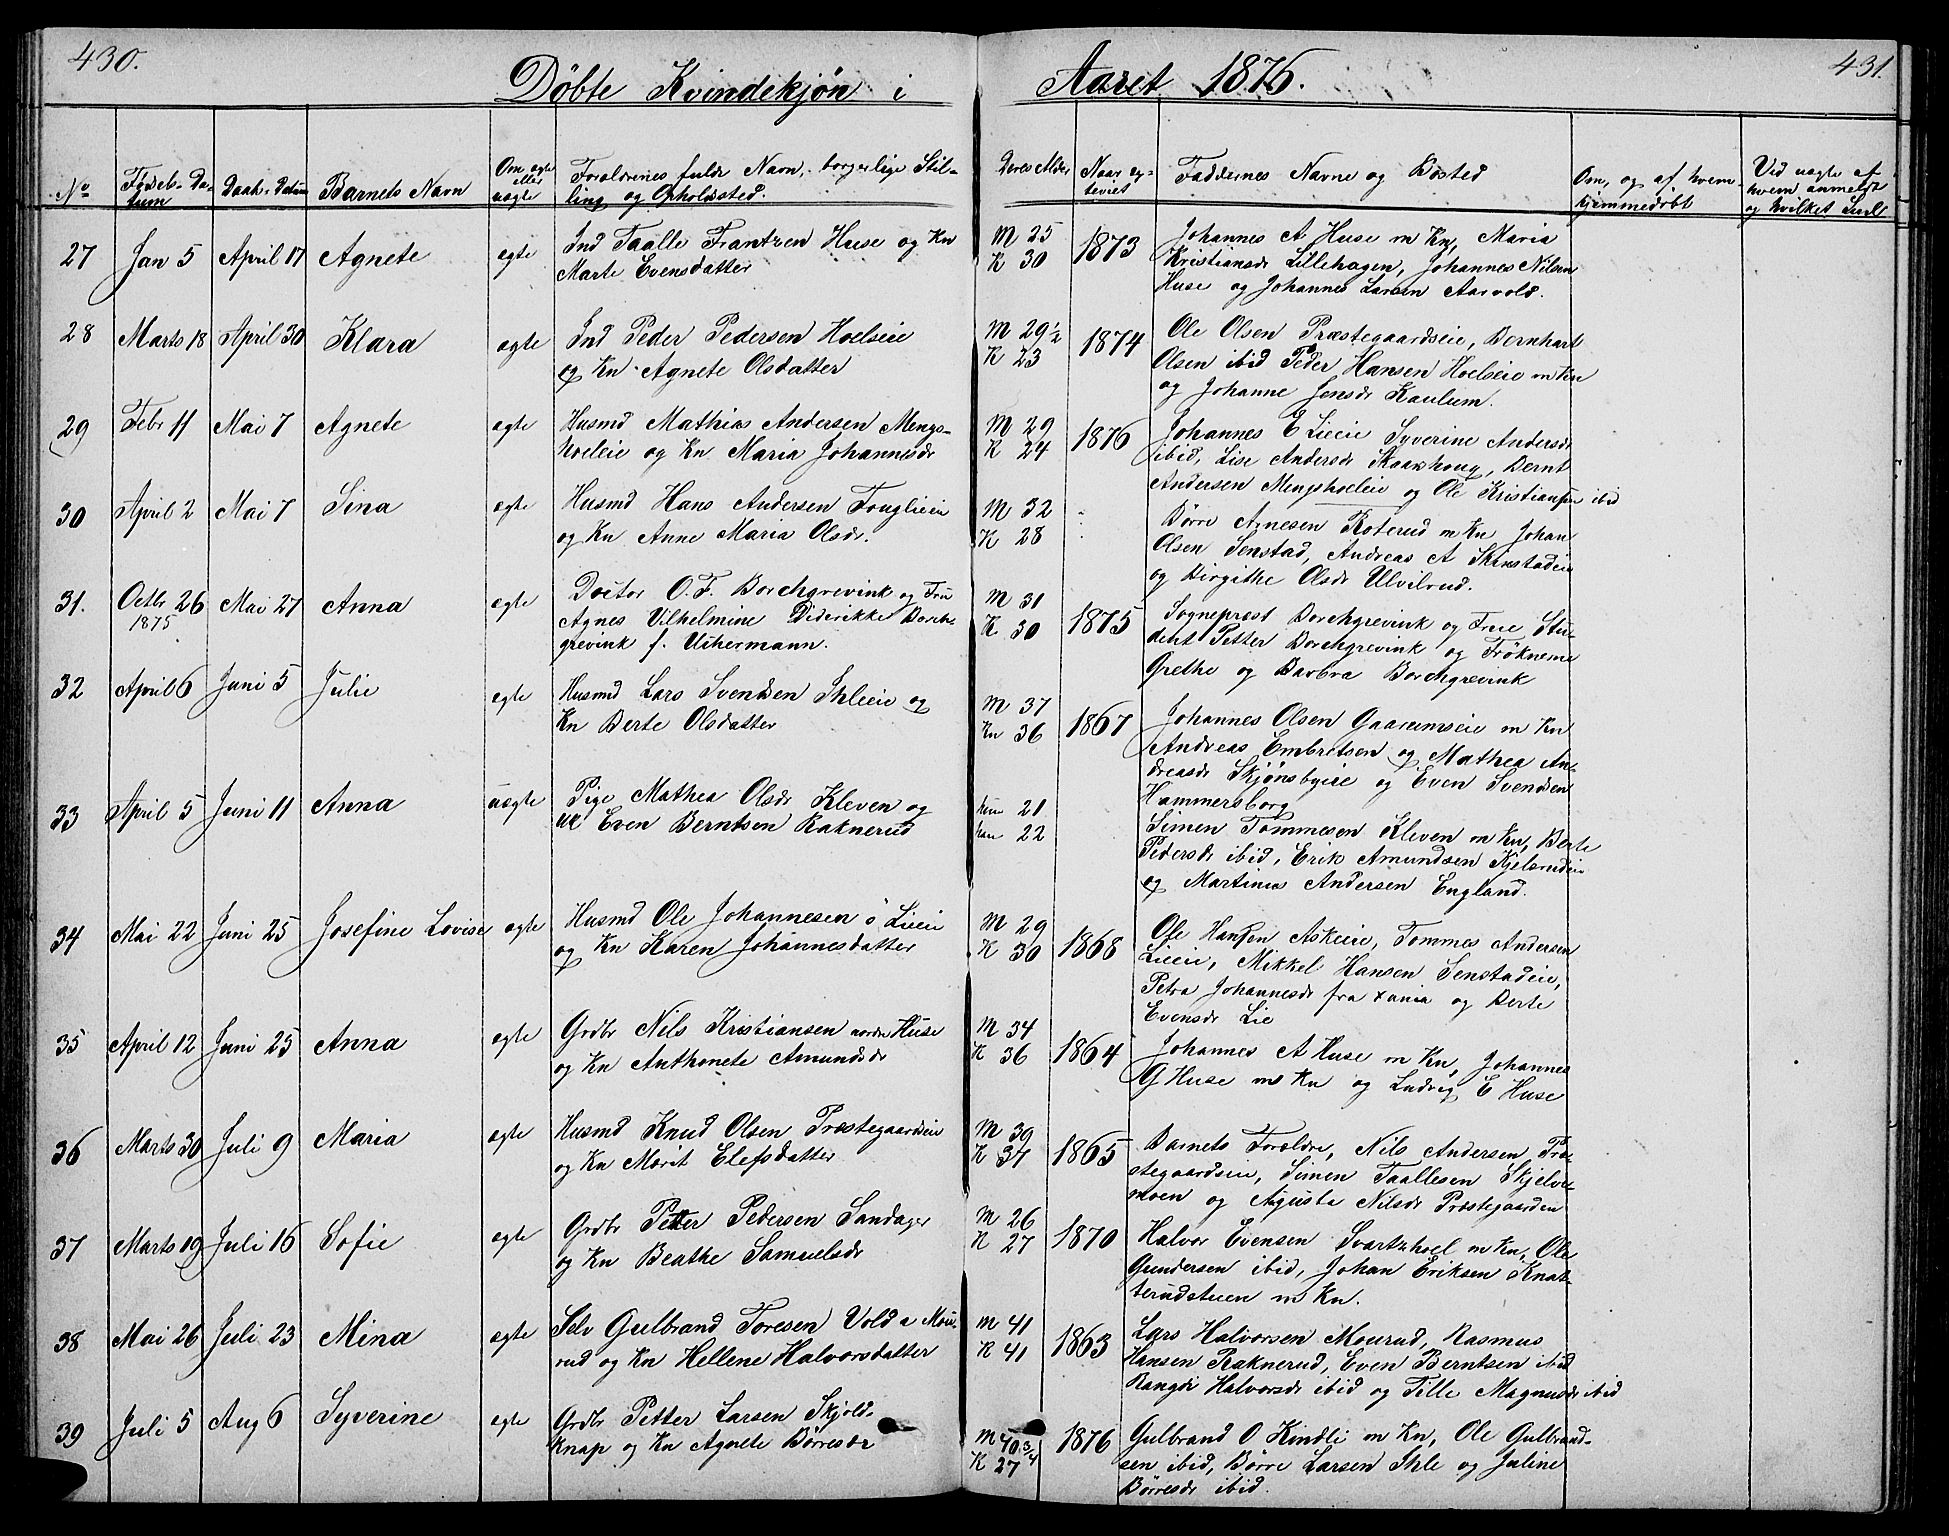 430.
431.
Döbte Kvindekjön i Aaret 1876.
No
Födsels-Da-
tum
Daabs Datum
Barnets Navn
Om ægte
eller
uægte
Forældrenes fulde Navn, borgerlige Stil-
ling og Opholdssted.
Deres Alder
Naar eg-
teviet
Faddernes Navne og Bosted
Om, og af hvem
hjemmedöbt
Ved uægte af
hvem anmeldt
og hvilket
27 Jan 5 April 17 Agnete egte
Ind Taalle Frantzen Huse og Kn
Marte Evensdatter
M 25
K 30
1873
Johannes A Huse m Kn, Maria
Kristiansdr Lillehagen, Johannes Nilsen
Huse og Johannes Larsen Aarvold.
28 Marts 18 April 30 Klara egte
Ind Peder Pedersen Hoelseie
og Kn Agnete Olsdatter
M 29 1/2
K 23
1874
Ole Olsen Præstegaardseie, Bernhart
Olsen ibid Peder Hansen Hoelseie m Kn
og Johanne Jensdr Kaulum.
29 Febr 11 Mai 7 Agnete egte
Husmd Mathias Andersen Mengs-
hoeleie og Kn Maria Johannesdr
M 29
K 24
1876
Johannes E Lieeie Syverine Andersdr
ibid, Lise Andersdr Skaarhoug, Bernt
Andersen Mengshoeleie og Ole Kristiansen ibid
30 April 2 Mai 7 Sina egte
Husmd Hans Andersen
og Kn Anne Maria Olsdr.
M 32
K 28
Börre Agnesen Roterud m Kn Johan
Olsen Senstad, Andreas A
og Birgithe Olsdr Ulvilrud.
31. Octbr 26 Mai 27 Anna egte
1875
Doctor O. F. Borchgrevink og Fru
Agnes Vilhelmine Diderikke Borch-
grevink f. Uchermann.
M 31
K 30
1875
Sogneprest Borchgrevink og Frue Stu-
dent Petter Borchgrevink og Fröknerne
Grethe og Barbra Borchgrevink
32 April 6 Juni 5 Julie egte
Husmd Lars Svendsen Ihleeie og
Kn Berte Olsdatter
M 37
Kn 36
1867
Johannes Olsen Gaarumseie m Kn
Andreas Embretsen og Mathea An-
dreasdr Skjönsbyeie og Even Svendsen
Hammersborg
33 April 5 Juni 11 Anna uægte
Pige Mathea Olsdr Kleven og
UK Even Berntsen Raknerud
hun 21
han 22
Simen Tommesen Kleven m Kn, Berte
Pedersdr ibid, Erik Amundsen Kjelsrudeie
og Martinus Andersen England.
34 Mai 22 Juni 25 Josefine Lovise egte
Husmd Ole Johannesen ö Lieeie
og Kn Karen Johannesdatter
M 29
K 30
1868
Ole Hansen Askeeie, Tommes Andersen
Lieeie, Mikkel Hansen Senstadeie,
Petra Johannesdr fra Xania og Berte
Evensdr Lie
35 April 12 Juni 25 Anna egte
Grdbr Nils Kristiansen nordre Huse
og Kn Anthonete Amundsdr
M 34
K 36
1864
Johannes A Huse m Kn, Johannes
G Huse m Kn og Ludvig E Huse
36 Marts 30 Juli 9 Maria egte
Husmd Knud Olsen Præstegaardseie
og Kn Marit Elefsdatter
M 39
K 37
1865
Barnets Forældre, Nils Andersen Præ-
stegaardseie, Simen Taallesen Skjelve-
moen og Agusta Nilsdr Præstegaarden
37 Marts 19 Juli 16 Sofie egte
Grdbr Petter Pedersen Sandager
og Kn Beathe Samuelsdr
M 26
K 27
1870
Halvor Evensen Svartshoel m Kn, Ole
Gundersen ibid, Johan Eriksen Knat-
terudstuen m Kn.
38 Mai 26 Juli 23 Mina egte
Selv Gulbrand Toresen Vold u Mou-
rud og Kn Hellene Halvorsdatter
M 41
K 41
1863
Lars Halvorsen Mourud, Rasmus
Hansen Raknerud, Even Berntsen ibid
Rangdi Halvorsdr ibid og Tille Magnusdr ibid
39 Juli 5 Aug 6 Syverine egte
Grdbr Petter Larsen Skjold-
knap og Kn Agnete Börresdr
M 40 3/4
K 27
1876
Gulbrand O Kindli m Kn, Ole Gulbrand-
sen ibid, Börre Larsen Ihle og Juline
Börresdr ibid.